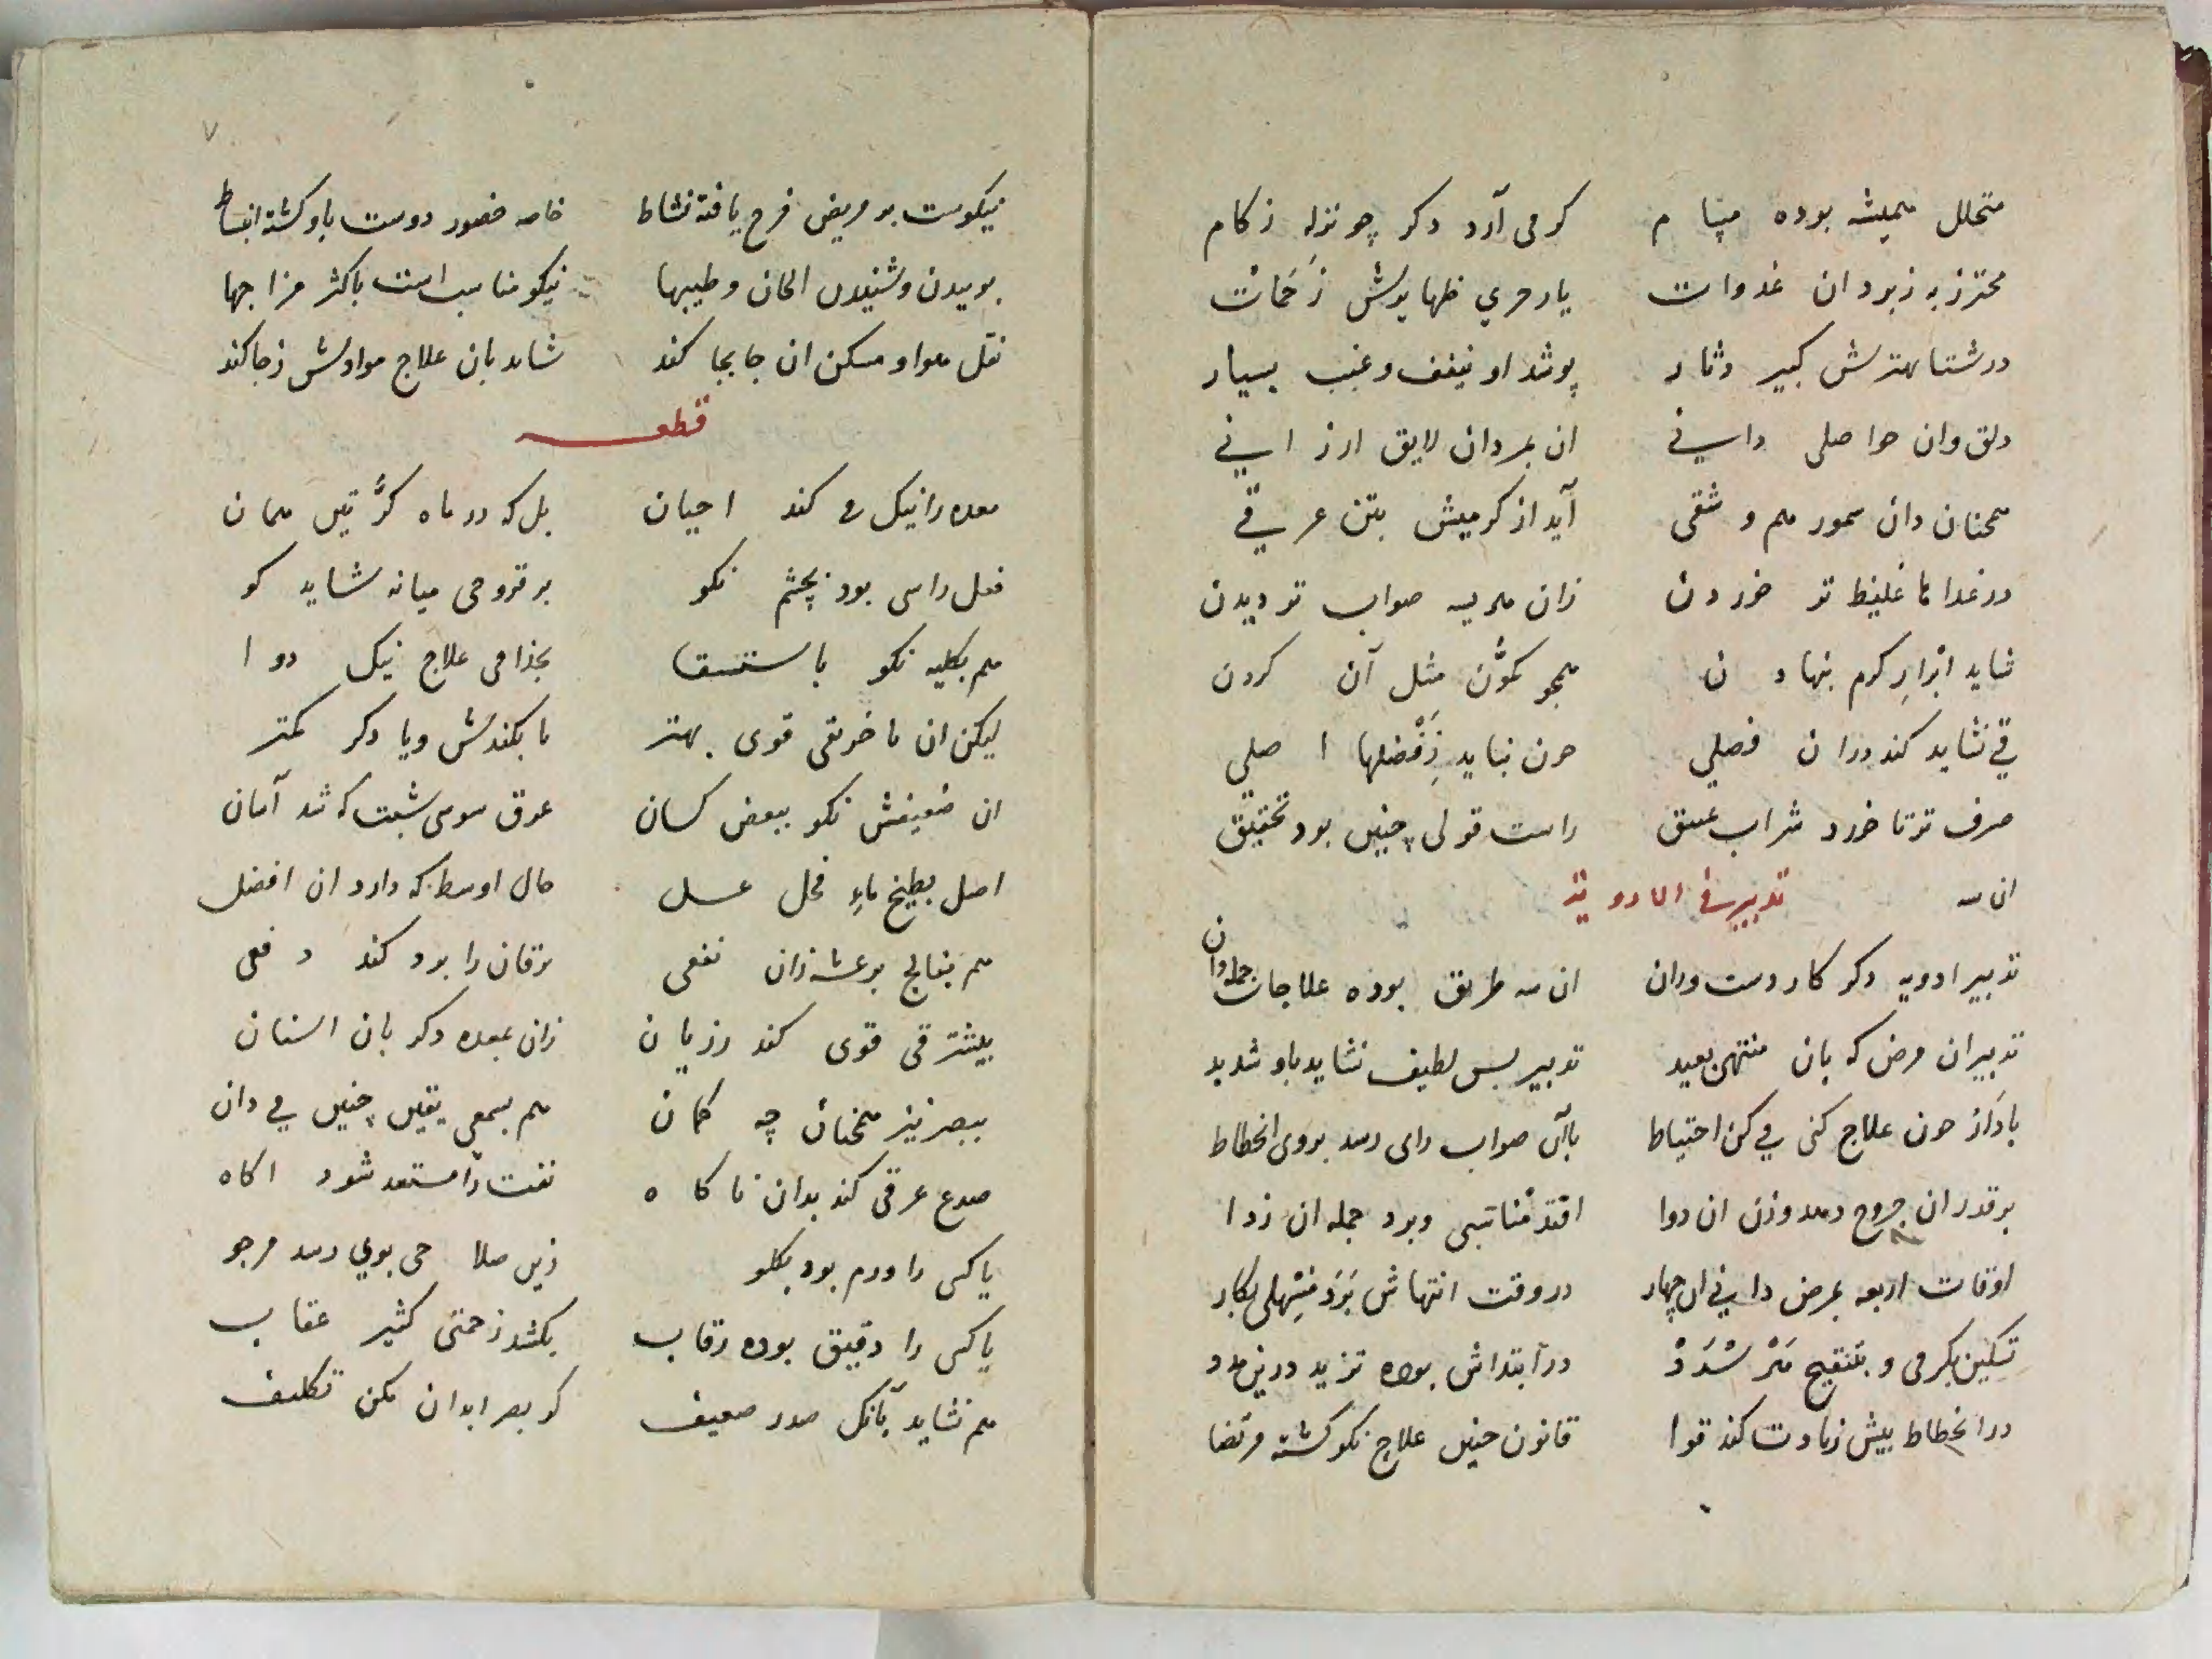 متحلل همیشه بوده مپام کرمی آرد دکر چو نزله زکام
محترز به زبرد ان غدوات یار حری ظهایرش زحمات
در شتا بهترش کبیر دثار پوشد او نیفف و غبب بسیار
دلق وان حواصلی دانی ان بمردان لایق ارزانی
همچنان دان سمور هم وشقی آید از کرمیش بتن عرقی
در غدا ما غلیظ تر خوردن زان هریسه صواب تر دیدن
شاید ابزار کرم بنهادن همچو کمون مثل آن کردن
قی نشاید کند دران فصلی جون نباید زفضلها اصلی
صرف تر تا خورد شراب عتیق راست قولی چنین بود تحقیق
ان سه تدبیر فی الادویة
تدبیر ادویه دکر کار دست ودان ان سه طریق بوده علاجات جمله دان
تدبیر ان مرض که بان منتهی بعید تدبیر بس لطیف نشاید باو شدید
باد از جون علاج کنی می کن احتیاط باآن صواب رای رسد بروی انحطاط
بر قدر ان خروج دهد وزن ان دوا افتد مناتبی وبرد جمله ان زدا
اوقات اربعه بمرض دانی ان چهار در وقت انتهاش بود مسهلی بکار
تسکین بکرمی و بتنقیح مر سدد در ابتداش بوده تزید درین مدد
در انحطاط بیش زیادت کند قوا قانون جنین علاج نکو کشته مرتضا
۷
نیکوست بر مریض فرح یافته نشاط خاصه حضور دوست باو کشته انبساط
بوییدن وشنیدن الحان وطیبها نیکو مناسب است باکثر مزاجها
نقل هوا و مسکن ان جابجا کند شاید بان علاج موادش زجا کند
قطعه
معده را نیک می کند احیان بل که در ماه کرتین همان
فعل راسی بود بچشم نکو بر قروحی میانه شاید کو
هم بکلیه نکو باستسقا بجذامی علاج نیک دوا
لیکن ان ما خریقی قوی بهتر ما بکندش ویا دکر کمتر
ان ضعیفش نکو ببعض کسان عرق سوسی شبت که شد آسان
اصل بطیخ ماء فجل عسل حال اوسط که دارد ان افضل
هم بفالج برعشه زان نفعی یرقان را برد کند دفعی
بیشتر قی قوی کند زریان زان بمعده دکر بان اسنان
ببصر نیز همچنان چه کمان هم بسمعی یقین چنین می دان
صدع عرقی کند بدان ناکاه نفث را مستعد شود اکاه
یا کسی را ورم بود بکلو زین صلاحی بوی رسد مرجو
یا کسی را دقیق بوده رقاب بکشد زحمتی کثیر عقاب
هم نشاید بانک صدر ضعیف کر بصر ابدان مکن تکلیف